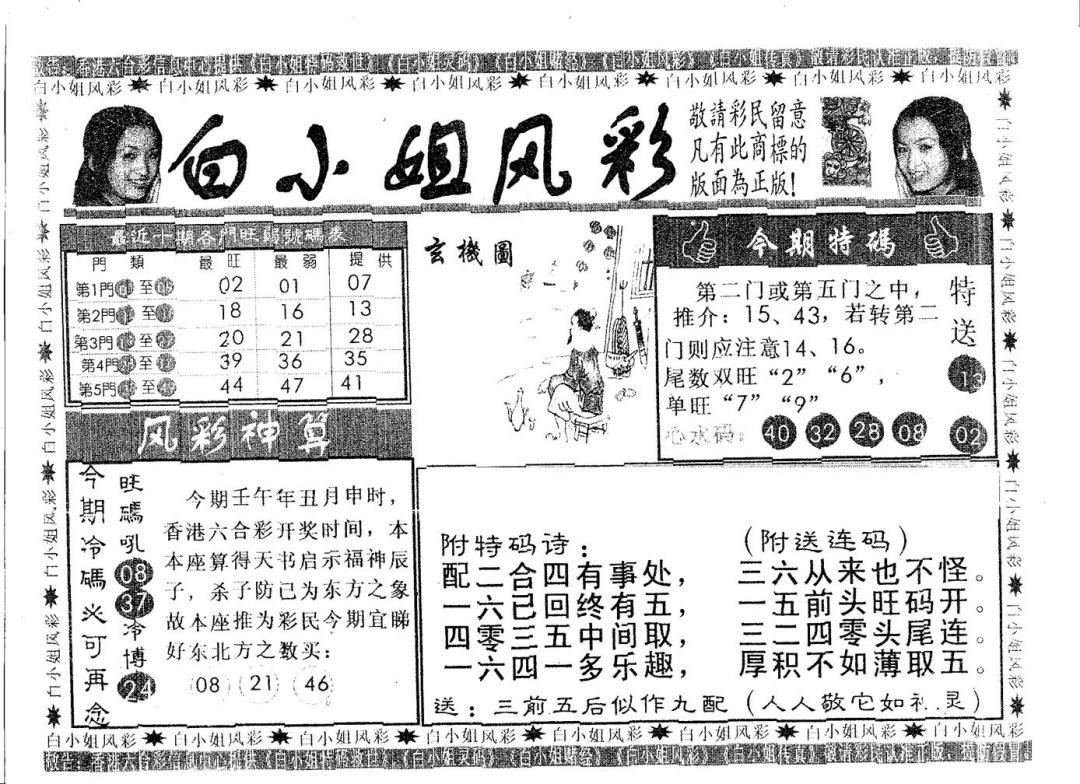 白小姐风彩 白小姐风彩 白小姐风彩 白小姐风彩 白小姐风彩 白小姐风彩 白小姐风彩 白小姐风彩
白小姐风彩
敬請彩民留意
凡有此商標的
版面為正版!
最近十期各門旺弱號碼表
門類 最旺 最弱 提供
第1門 至 02 01 07
第2門 至 18 16 13
第3門 至 20 21 28
第4門 至 39 36 35
第5門 至 44 47 41
玄機圖
今期特碼
第二门或第五门之中,
推介:15、43,若转第二
门则应注意14、16。
尾数双旺“2”“6”,
单旺“7”“9”
心水码:40 32 28 08
特送
13
02
风彩神算
今期冷碼必可再念
旺碼吼
08
37
冷博
24
今期壬午年丑月申时,
香港六合彩开奖时间,本
本座算得天书启示福神辰
子,杀子防己为东方之象
故本座推为彩民今期宜睇
好东北方之数买:
08 21 46
附特码诗:
配二合四有事处,
一六已回终有五,
四零三五中间取,
一六四一多乐趣,
(附送连码)
三六从来也不怪。
一五前头旺码开。
三二四零头尾连。
厚积不如薄取五。
送:三前五后似作九配(人人敬它如礼.灵)
白小姐风彩 白小姐风彩 白小姐风彩 白小姐风彩 白小姐风彩 白小姐风彩 白小姐风彩 白小姐风彩